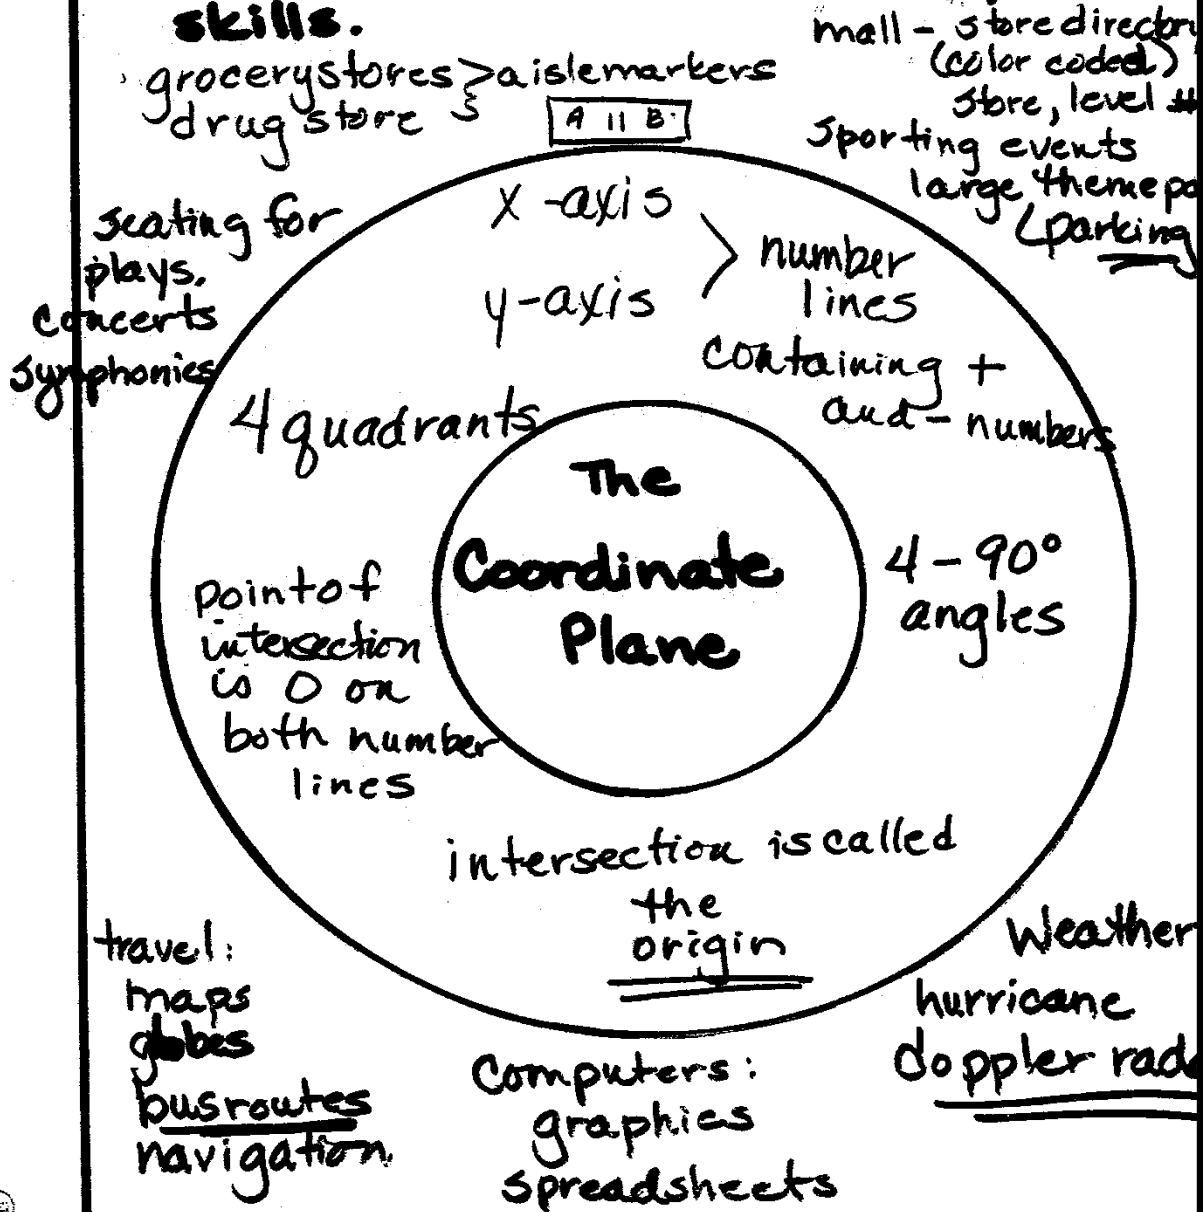 skills.
grocerystores > aislemarkers
drug store
A 11 B
mall - store directory
(color coded)
store, level #
sporting events
large theme pa
(parking
seating for
plays.
concerts
symphonies
x-axis
y-axis
number
lines
containing +
and - numbers
4 quadrants
The
Coordinate
Plane
4 - 90°
angles
point of
intersection
is 0 on
both number
lines
intersection is called
the
origin
travel:
maps
globes
bus routes
navigation.
Computers:
graphics
spreadsheets
Weather
hurricane
doppler rad